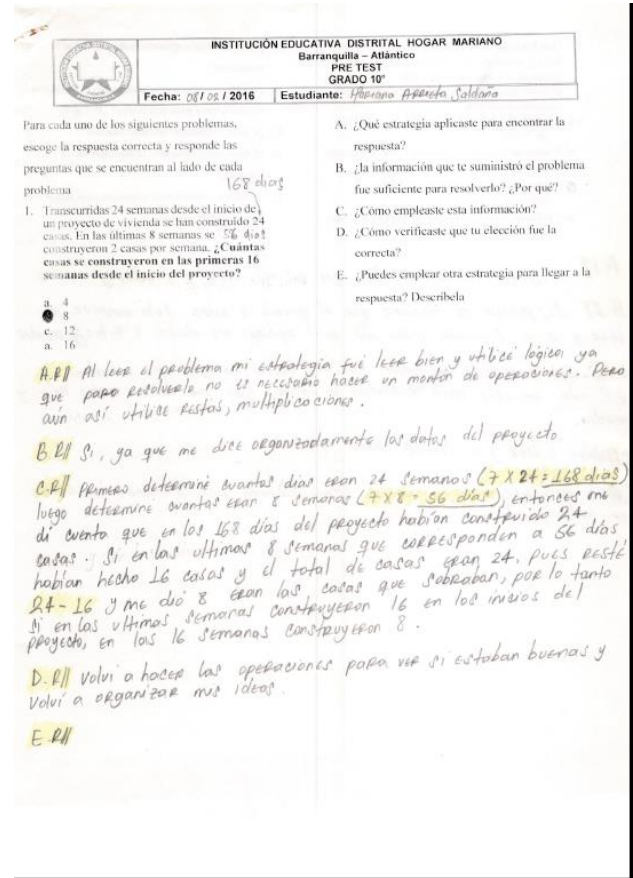 INSTITUCIÓN EDUCATIVA DISTRITAL HOGAR MARIANO
Barranquilla – Atlántico
PRE TEST
GRADO 10°
Fecha: 08/ 08 / 2016 Estudiante: Mariana Arrieta Saldaña
Para cada uno de los siguientes problemas,
escoge la respuesta correcta y responde las
preguntas que se encuentran al lado de cada
problema
168 dias
1. Transcurridas 24 semanas desde el inicio de
un proyecto de vivienda se han construido 24
casas. En las últimas 8 semanas se 56 dias
construyeron 2 casas por semana. ¿Cuántas
casas se construyeron en las primeras 16
semanas desde el inicio del proyecto?
a. 4
8
c. 12
a. 16
A. ¿Qué estrategia aplicaste para encontrar la
respuesta?
B. ¿la información que te suministró el problema
fue suficiente para resolverlo? ¿Por qué?
C. ¿Cómo empleaste esta información?
D. ¿Cómo verificaste que tu elección fue la
correcta?
E. ¿Puedes emplear otra estrategia para llegar a la
respuesta? Descríbela
A.R// Al leer el problema mi estrategia fué leer bien y utilicé lógica, ya
que para resolverlo no es necesario hacer un montón de operaciones. Pero
aún así utilice restas, multiplicaciones.
B R// Si, ya que me dice organizadamente los datos del proyecto
C.R// Primero determiné cuantos dias eran 24 semanas (7 X 24 = 168 dias)
luego determine cuantas eran 8 semanas (7 X 8 = 56 dias), entonces me
di cuenta que en los 168 dias del proyecto habian construido 24
casas. Si en las ultimas 8 semanas que corresponden a 56 dias
habian hecho 16 casas y el total de casas eran 24, pues resté
24 - 16 y me dió 8 eran las casas que sobraban, por lo tanto
si en las ultimas semanas construyeron 16 en los inicios del
proyecto, en las 16 semanas construyeron 8.
D. R// Volvi a hacer las operaciones para ver si estaban buenas y
volví a organizar mis ideas.
E R//